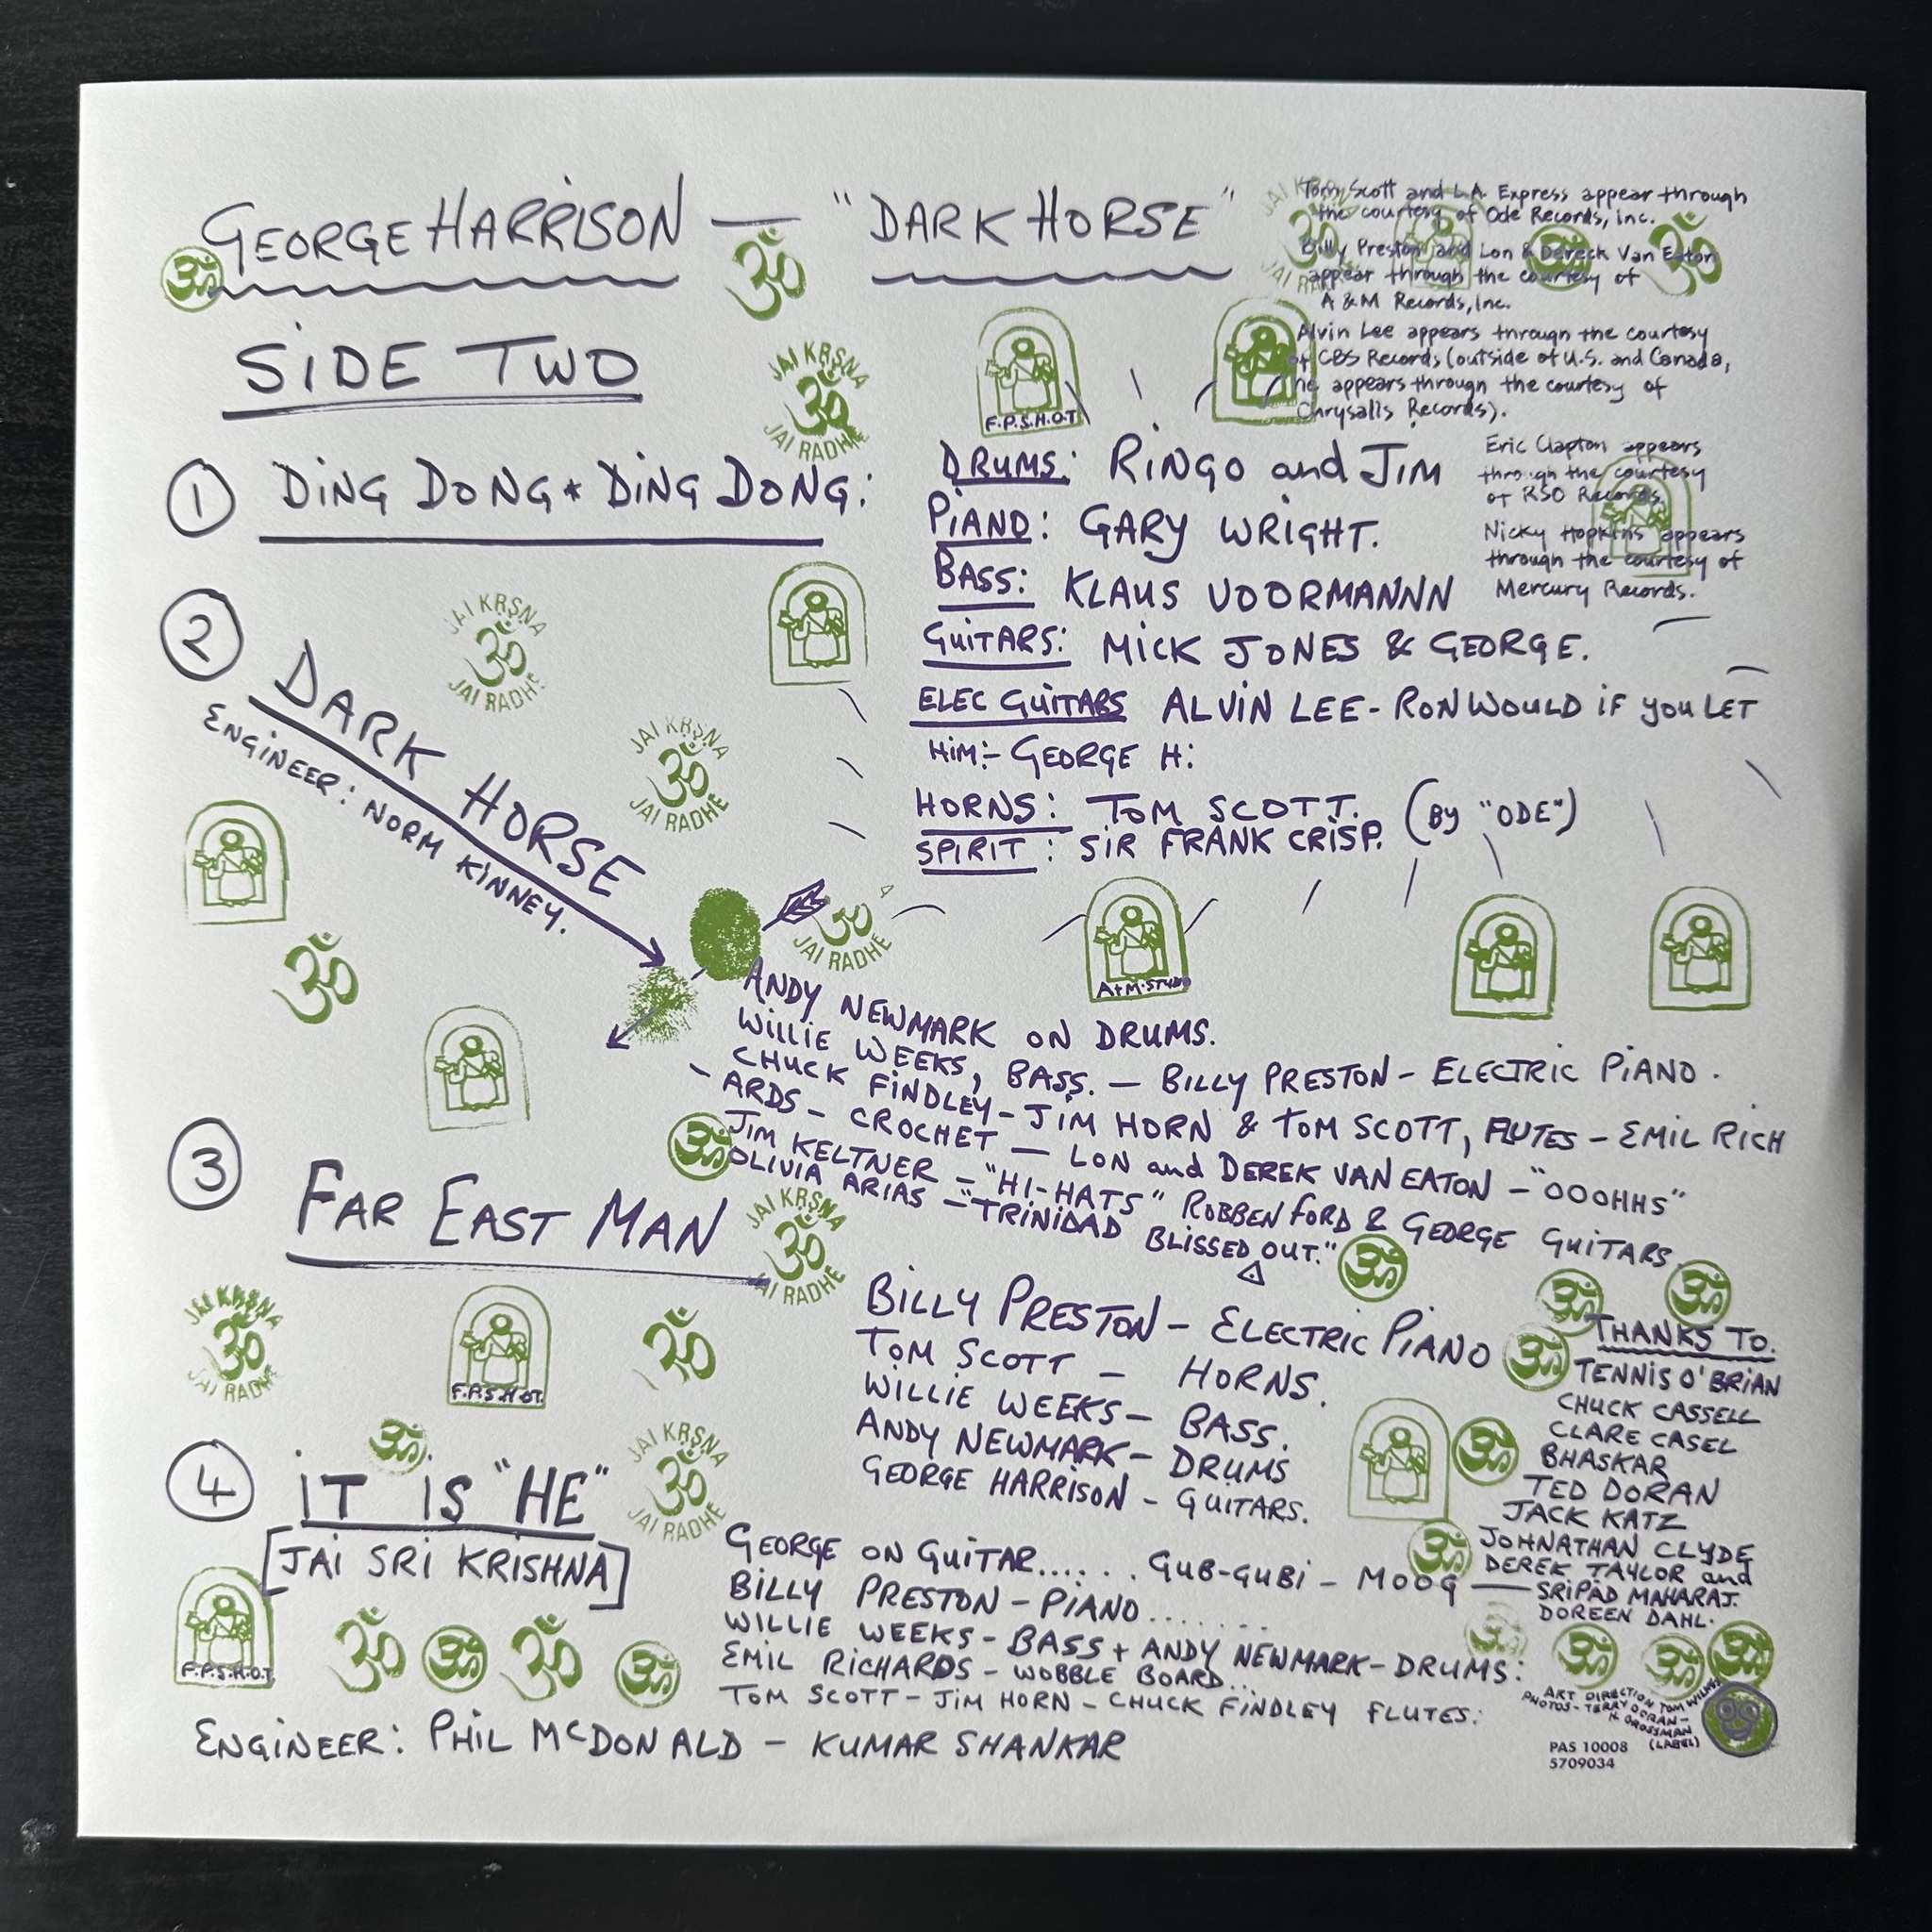 GEORGE HARRISON — "DARK HORSE"
SIDE TWO
Tom Scott and L.A. Express appear through
the courtesy of Ode Records, Inc.
Billy Preston and Lon & Dereck Van Eaton
appear through the courtesy of
A & M Records, Inc.
Alvin Lee appears through the courtesy
of CBS Records (outside of U.S. and Canada,
he appears through the courtesy of
Chrysalis Records).
Eric Clapton appears
through the courtesy
of RSO Records.
Nicky Hopkins appears
through the courtesy of
Mercury Records.
① DING DONG * DING DONG:
DRUMS: RINGO and JIM
PIANO: GARY WRIGHT.
BASS: KLAUS VOORMANNN
GUITARS: MICK JONES & GEORGE.
ELEC GUITARS ALVIN LEE - RON WOULD IF YOU LET
HIM:- GEORGE H:
HORNS: TOM SCOTT. (BY "ODE")
SPIRIT: SIR FRANK CRISP.
② DARK HORSE
ENGINEER: NORM KINNEY.
ANDY NEWMARK ON DRUMS.
WILLIE WEEKS, BASS. — BILLY PRESTON - ELECTRIC PIANO.
CHUCK FINDLEY - JIM HORN & TOM SCOTT, FLUTES - EMIL RICH
- ARDS - CROCHET — LON and DEREK VAN EATON - "OOOHHS"
JIM KELTNER - "HI-HATS" ROBBEN FORD & GEORGE GUITARS.
OLIVIA ARIAS - "TRINIDAD BLISSED OUT."
③ FAR EAST MAN
BILLY PRESTON - ELECTRIC PIANO
TOM SCOTT - HORNS.
WILLIE WEEKS - BASS.
ANDY NEWMARK - DRUMS
GEORGE HARRISON - GUITARS.
④ IT IS "HE"
[JAI SRI KRISHNA]
GEORGE ON GUITAR...... GUB-GUBI - MOOG —
BILLY PRESTON - PIANO.......
WILLIE WEEKS - BASS + ANDY NEWMARK - DRUMS:
EMIL RICHARDS - WOBBLE BOARD...
TOM SCOTT - JIM HORN - CHUCK FINDLEY FLUTES:
ENGINEER: PHIL McDONALD - KUMAR SHANKAR
THANKS TO.
TENNIS O'BRIAN
CHUCK CASSELL
CLARE CASEL
BHASKAR
TED DORAN
JACK KATZ
JOHNATHAN CLYDE
DEREK TAYLOR and
SRIPAD MAHARAJ.
DOREEN DAHL.
ART DIRECTION TOM WILKES
PHOTOS - TERRY DORAN -
H. GROSSMAN
(LABEL)
PAS 10008
5709034
ॐ
JAI KRSNA
ॐ
JAI RADHE
F.P.S.H.O.T
JAI KRSNA
ॐ
JAI RADHE
JAI KRSNA
ॐ
JAI RADHE
ॐ
JAI RADHE
A+M·STUDIO
JAI KRSNA
ॐ
JAI RADHE
JAI KRSNA
ॐ
JAI RADHE
F.P.S.H.O.T.
JAI KRSNA
ॐ
JAI RADHE
F.P.S.H.O.T.
ॐ ॐ ॐ ॐ